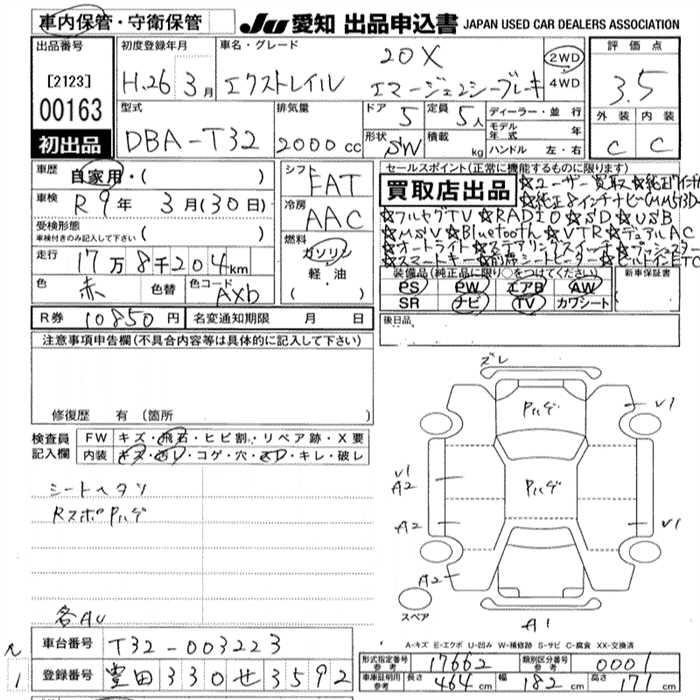 車内保管・守衛保管
JU 愛知 出品申込書 JAPAN USED CAR DEALERS ASSOCIATION
出品番号
[2123]
00163
初出品
初度登録年月
H.26 3月
車名・グレード
20X
エクストレイル エマージェンシーブレーキ
2WD
4WD
評価点
3.5
外装 内装
C C
型式
DBA-T32
排気量
2000cc
ドア 5
定員 5人
形状 SW
積載 kg
ディーラー・並行
モデル年式 年
ハンドル 左・右
車歴
自家用・( )
車検
R9年 3月(30日)
受検形態
車検付きのみ記入して下さい( )
走行
17万8千204km
色 赤 色替 色コード AXb
シフト
FAT
冷房
AAC
燃料
ガソリン
軽・油
( )
セールスポイント(正常に機能するものに限ります)
買取店出品
☆ユーザー買取☆純正
☆純正8インチナビ
☆フルセグTV☆RADIO☆SD☆USB
☆MSV☆Bluetooth☆VTR☆デュアルAC
☆オートライト☆ステアリングスイッチ☆プッシュスター
☆スマートキー☆前席シートヒーター☆ビルトインETC
装備品(純正品に限り○をつけてください)
PS PW エアB AW
SR ナビ TV カワシート
新車保証書
後日品
R券 10850円 名変通知期限 月 日
注意事項申告欄(不具合内容等は具体的に記入して下さい)
修復歴 有(箇所 )
検査員記入欄
FW キズ・飛石・ヒビ割・リペア跡・X要
内装 キズ・汚レ・コゲ・穴・スレ・キレ・破レ
シートヘタリ
RスポPハゲ
各AU
ズレ
Pハゲ
V1
Pハゲ
V1
A2
A2
V1
A2
スペア
A1
A-キズ E-エクボ U-凹み W-補修跡 S-サビ C-腐食 XX-交換済
車台番号 T32-003223
登録番号 豊田 330 せ 3592
形式指定番号参考 17662 類別区分番号参考 0001
車庫証明用参考 長さ 464cm 幅 182cm 高さ 171cm